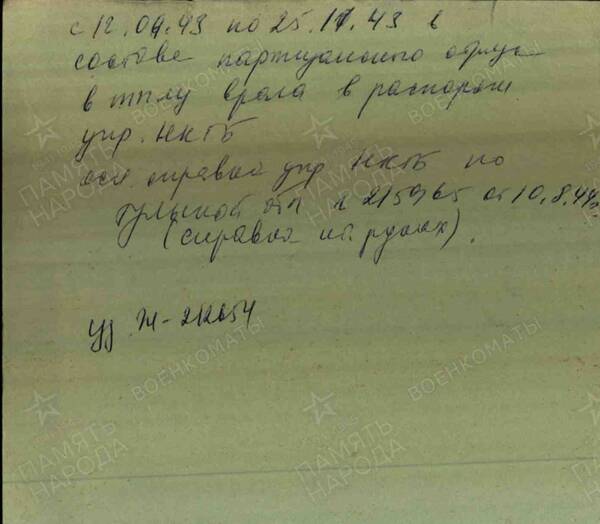 с 12.04.43 по 25.11.43 в
составе партизанского отряда
в тылу врага в распоряж
упр. НКГБ
осн. справка упр НКГБ по
Тульской обл № 215965 от 10.8.44г.
(справка на руках).
уд Ж-212654
ПАМЯТЬ НАРОДА
ВОЕНКОМАТЫ